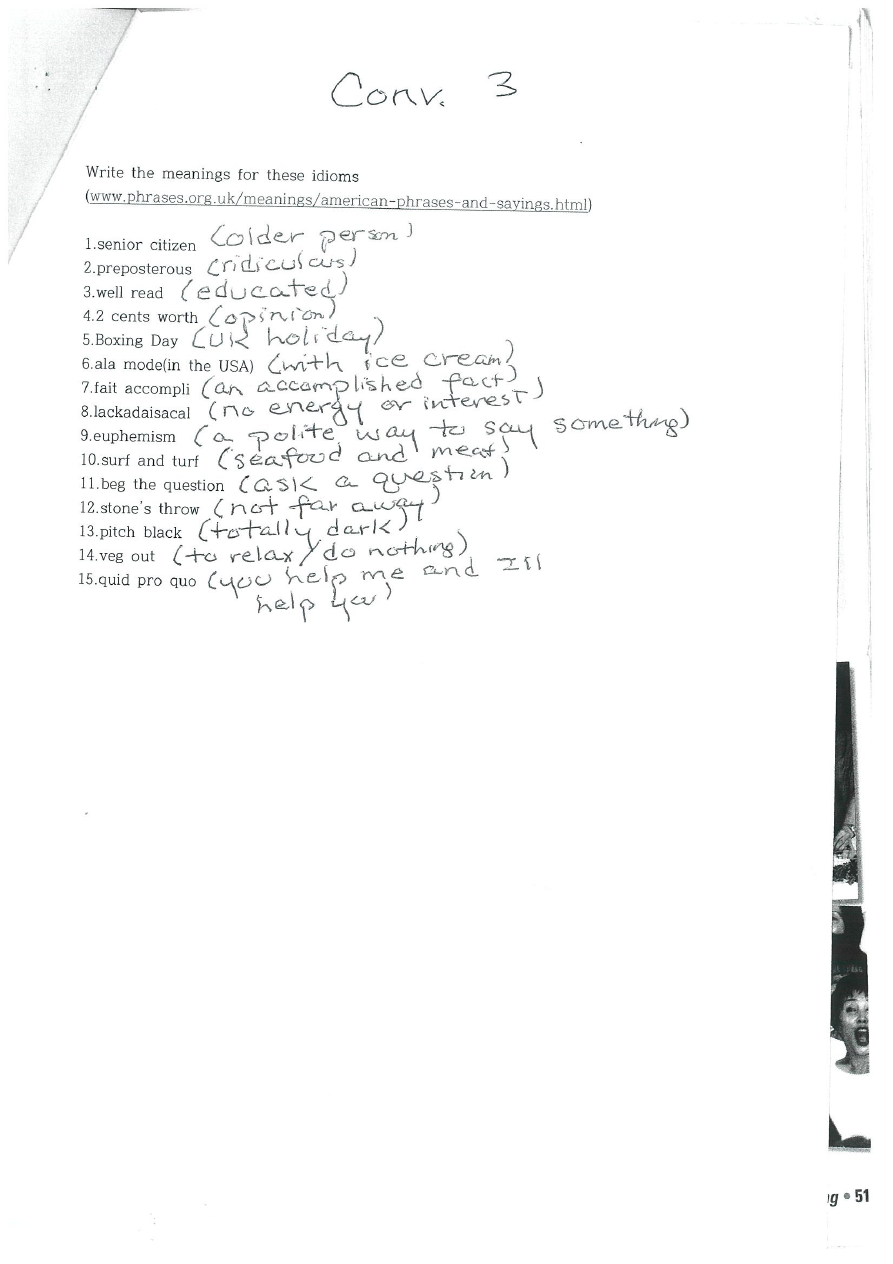 Conv. 3
Write the meanings for these idioms
(www.phrases.org.uk/meanings/american-phrases-and-sayings.html)
1.senior citizen (older person)
2.preposterous (ridiculous)
3.well read (educated)
4.2 cents worth (opinion)
5.Boxing Day (UK holiday)
6.ala mode(in the USA) (with ice cream)
7.fait accompli (an accomplished fact)
8.lackadaisacal (no energy or interest)
9.euphemism (a polite way to say something)
10.surf and turf (seafood and meat)
11.beg the question (ask a question)
12.stone's throw (not far away)
13.pitch black (totally dark)
14.veg out (to relax/do nothing)
15.quid pro quo (you help me and I'll
help you)
g • 51